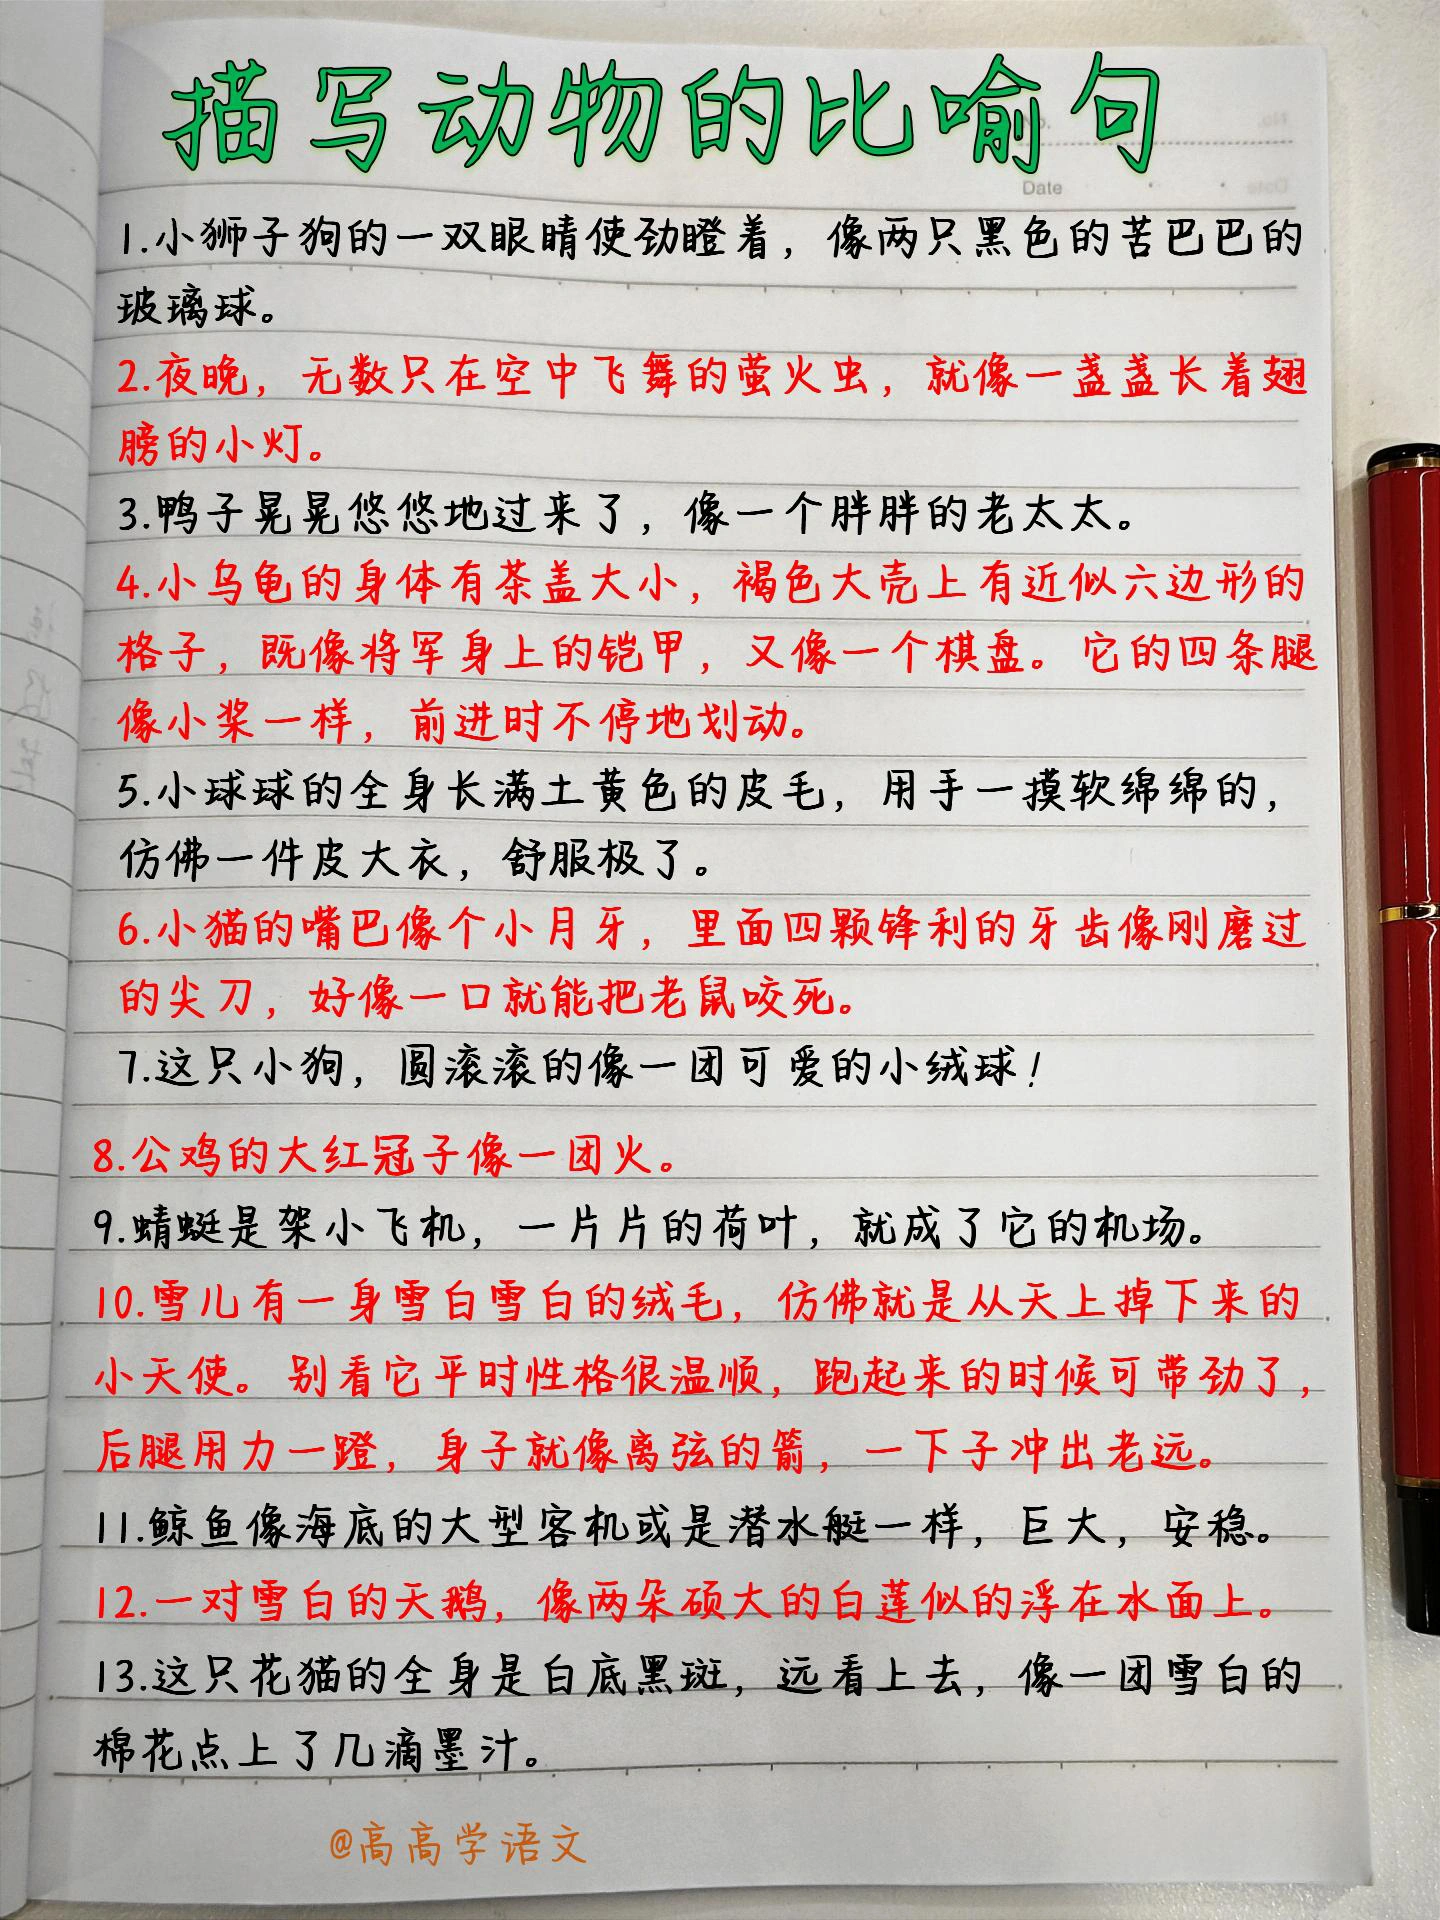 描写动物的比喻句
No.
Date
1.小狮子狗的一双眼睛使劲瞪着，像两只黑色的苦巴巴的
玻璃球。
2.夜晚，无数只在空中飞舞的萤火虫，就像一盏盏长着翅
膀的小灯。
3.鸭子晃晃悠悠地过来了，像一个胖胖的老太太。
4.小乌龟的身体有茶盖大小，褐色大壳上有近似六边形的
格子，既像将军身上的铠甲，又像一个棋盘。它的四条腿
像小桨一样，前进时不停地划动。
5.小球球的全身长满土黄色的皮毛，用手一摸软绵绵的，
仿佛一件皮大衣，舒服极了。
6.小猫的嘴巴像个小月牙，里面四颗锋利的牙齿像刚磨过
的尖刀，好像一口就能把老鼠咬死。
7.这只小狗，圆滚滚的像一团可爱的小绒球！
8.公鸡的大红冠子像一团火。
9.蜻蜓是架小飞机，一片片的荷叶，就成了它的机场。
10.雪儿有一身雪白雪白的绒毛，仿佛就是从天上掉下来的
小天使。别看它平时性格很温顺，跑起来的时候可带劲了，
后腿用力一蹬，身子就像离弦的箭，一下子冲出老远。
11.鲸鱼像海底的大型客机或是潜水艇一样，巨大，安稳。
12.一对雪白的天鹅，像两朵硕大的白莲似的浮在水面上。
13.这只花猫的全身是白底黑斑，远看上去，像一团雪白的
棉花点上了几滴墨汁。
@高高学语文